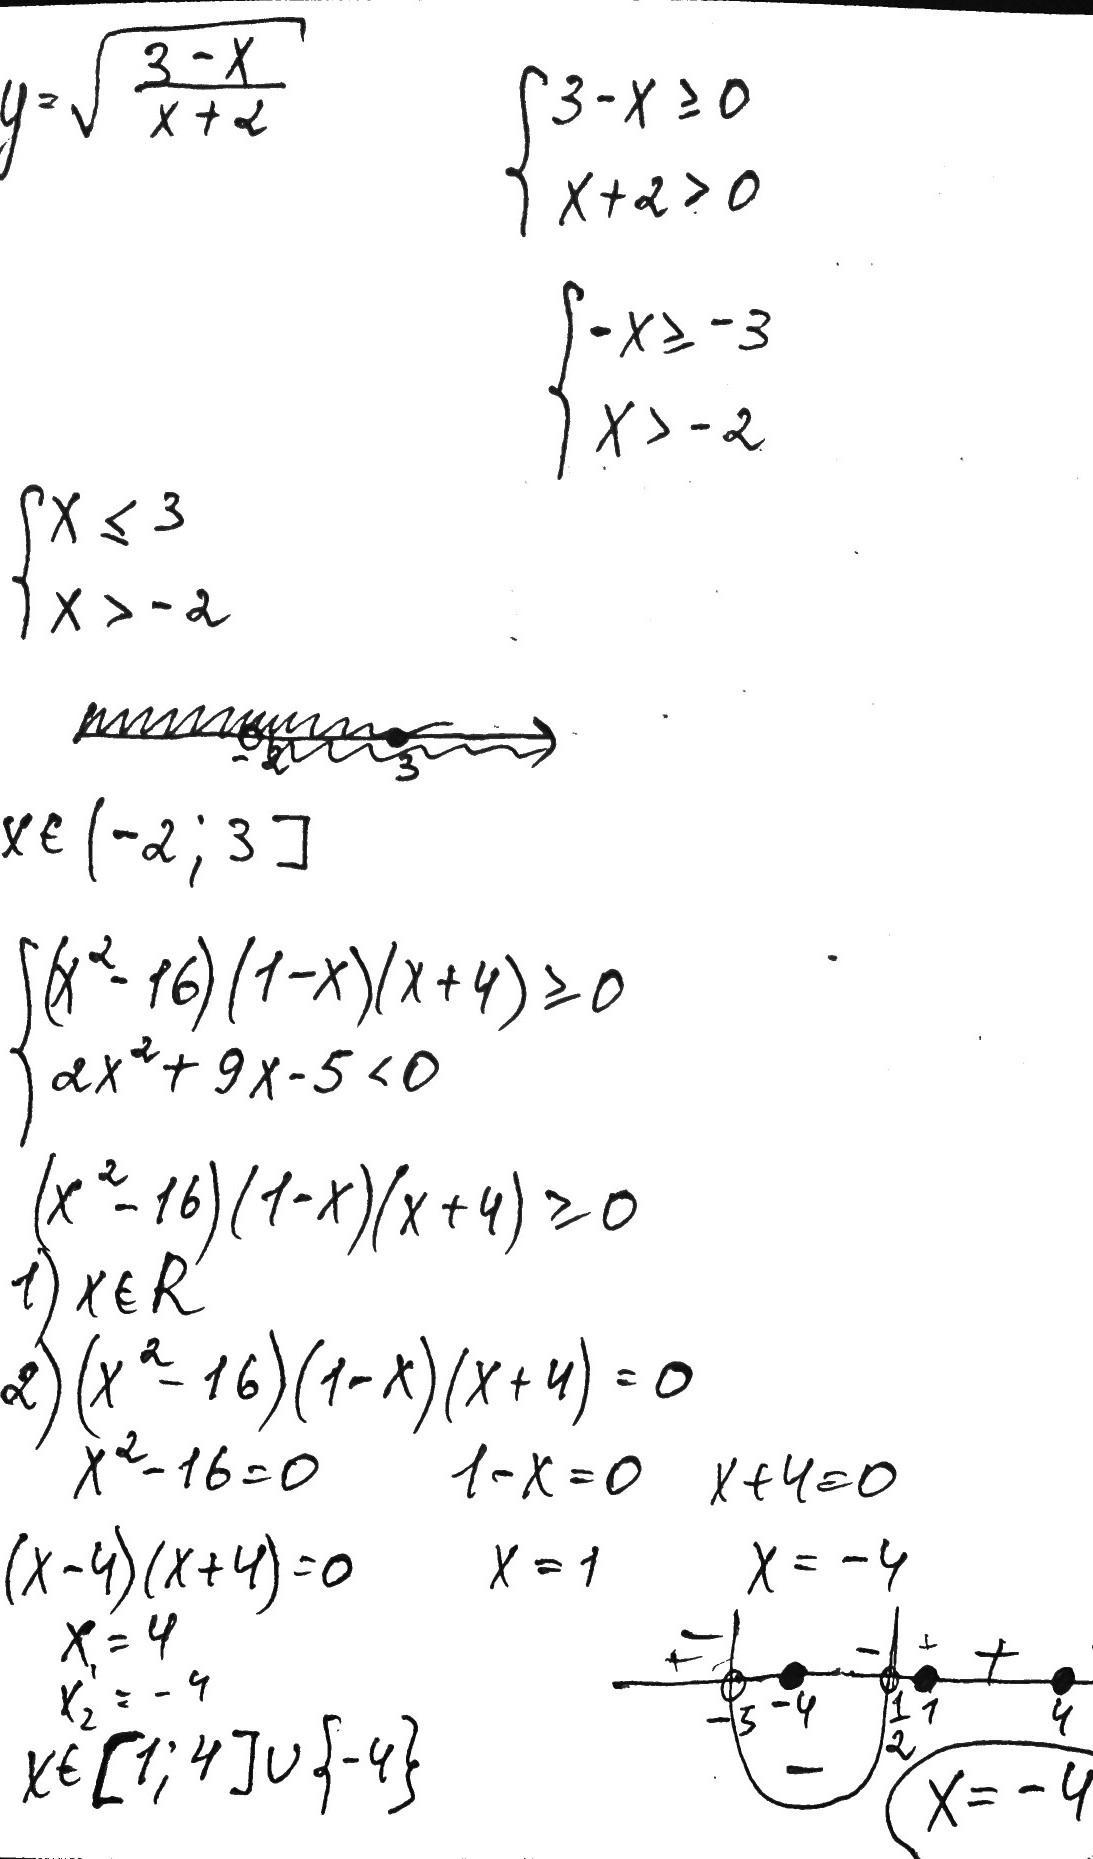 y = √((3 - x)/(x + 2))
{ 3 - x ≥ 0
x + 2 > 0
{ -x ≥ -3
x > -2
{ x ≤ 3
x > -2
-2 3
x ∈ (-2; 3]
{ (x² - 16)(1 - x)(x + 4) ≥ 0
2x² + 9x - 5 < 0
(x² - 16)(1 - x)(x + 4) ≥ 0
1) x ∈ R
2) (x² - 16)(1 - x)(x + 4) = 0
x² - 16 = 0 1 - x = 0 x + 4 = 0
(x - 4)(x + 4) = 0 x = 1 x = -4
x₁ = 4
x₂ = -4
x ∈ [1; 4] ∪ {-4}
+ - - + +
-5 -4 1/2 1 4
-
x = -4